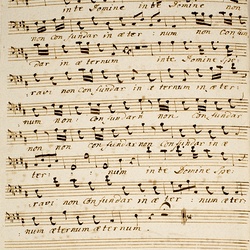 in te Domine in te Domine non
non confundar in æter num non confun
dar in æternum in te Domine spe
ravi non confundar in æternum in æter
num non confundar non confundar
non confundar non confundar in æ
ter num in te Domine spe
ravi non confundar in æter num in æ
num æternum æternum.